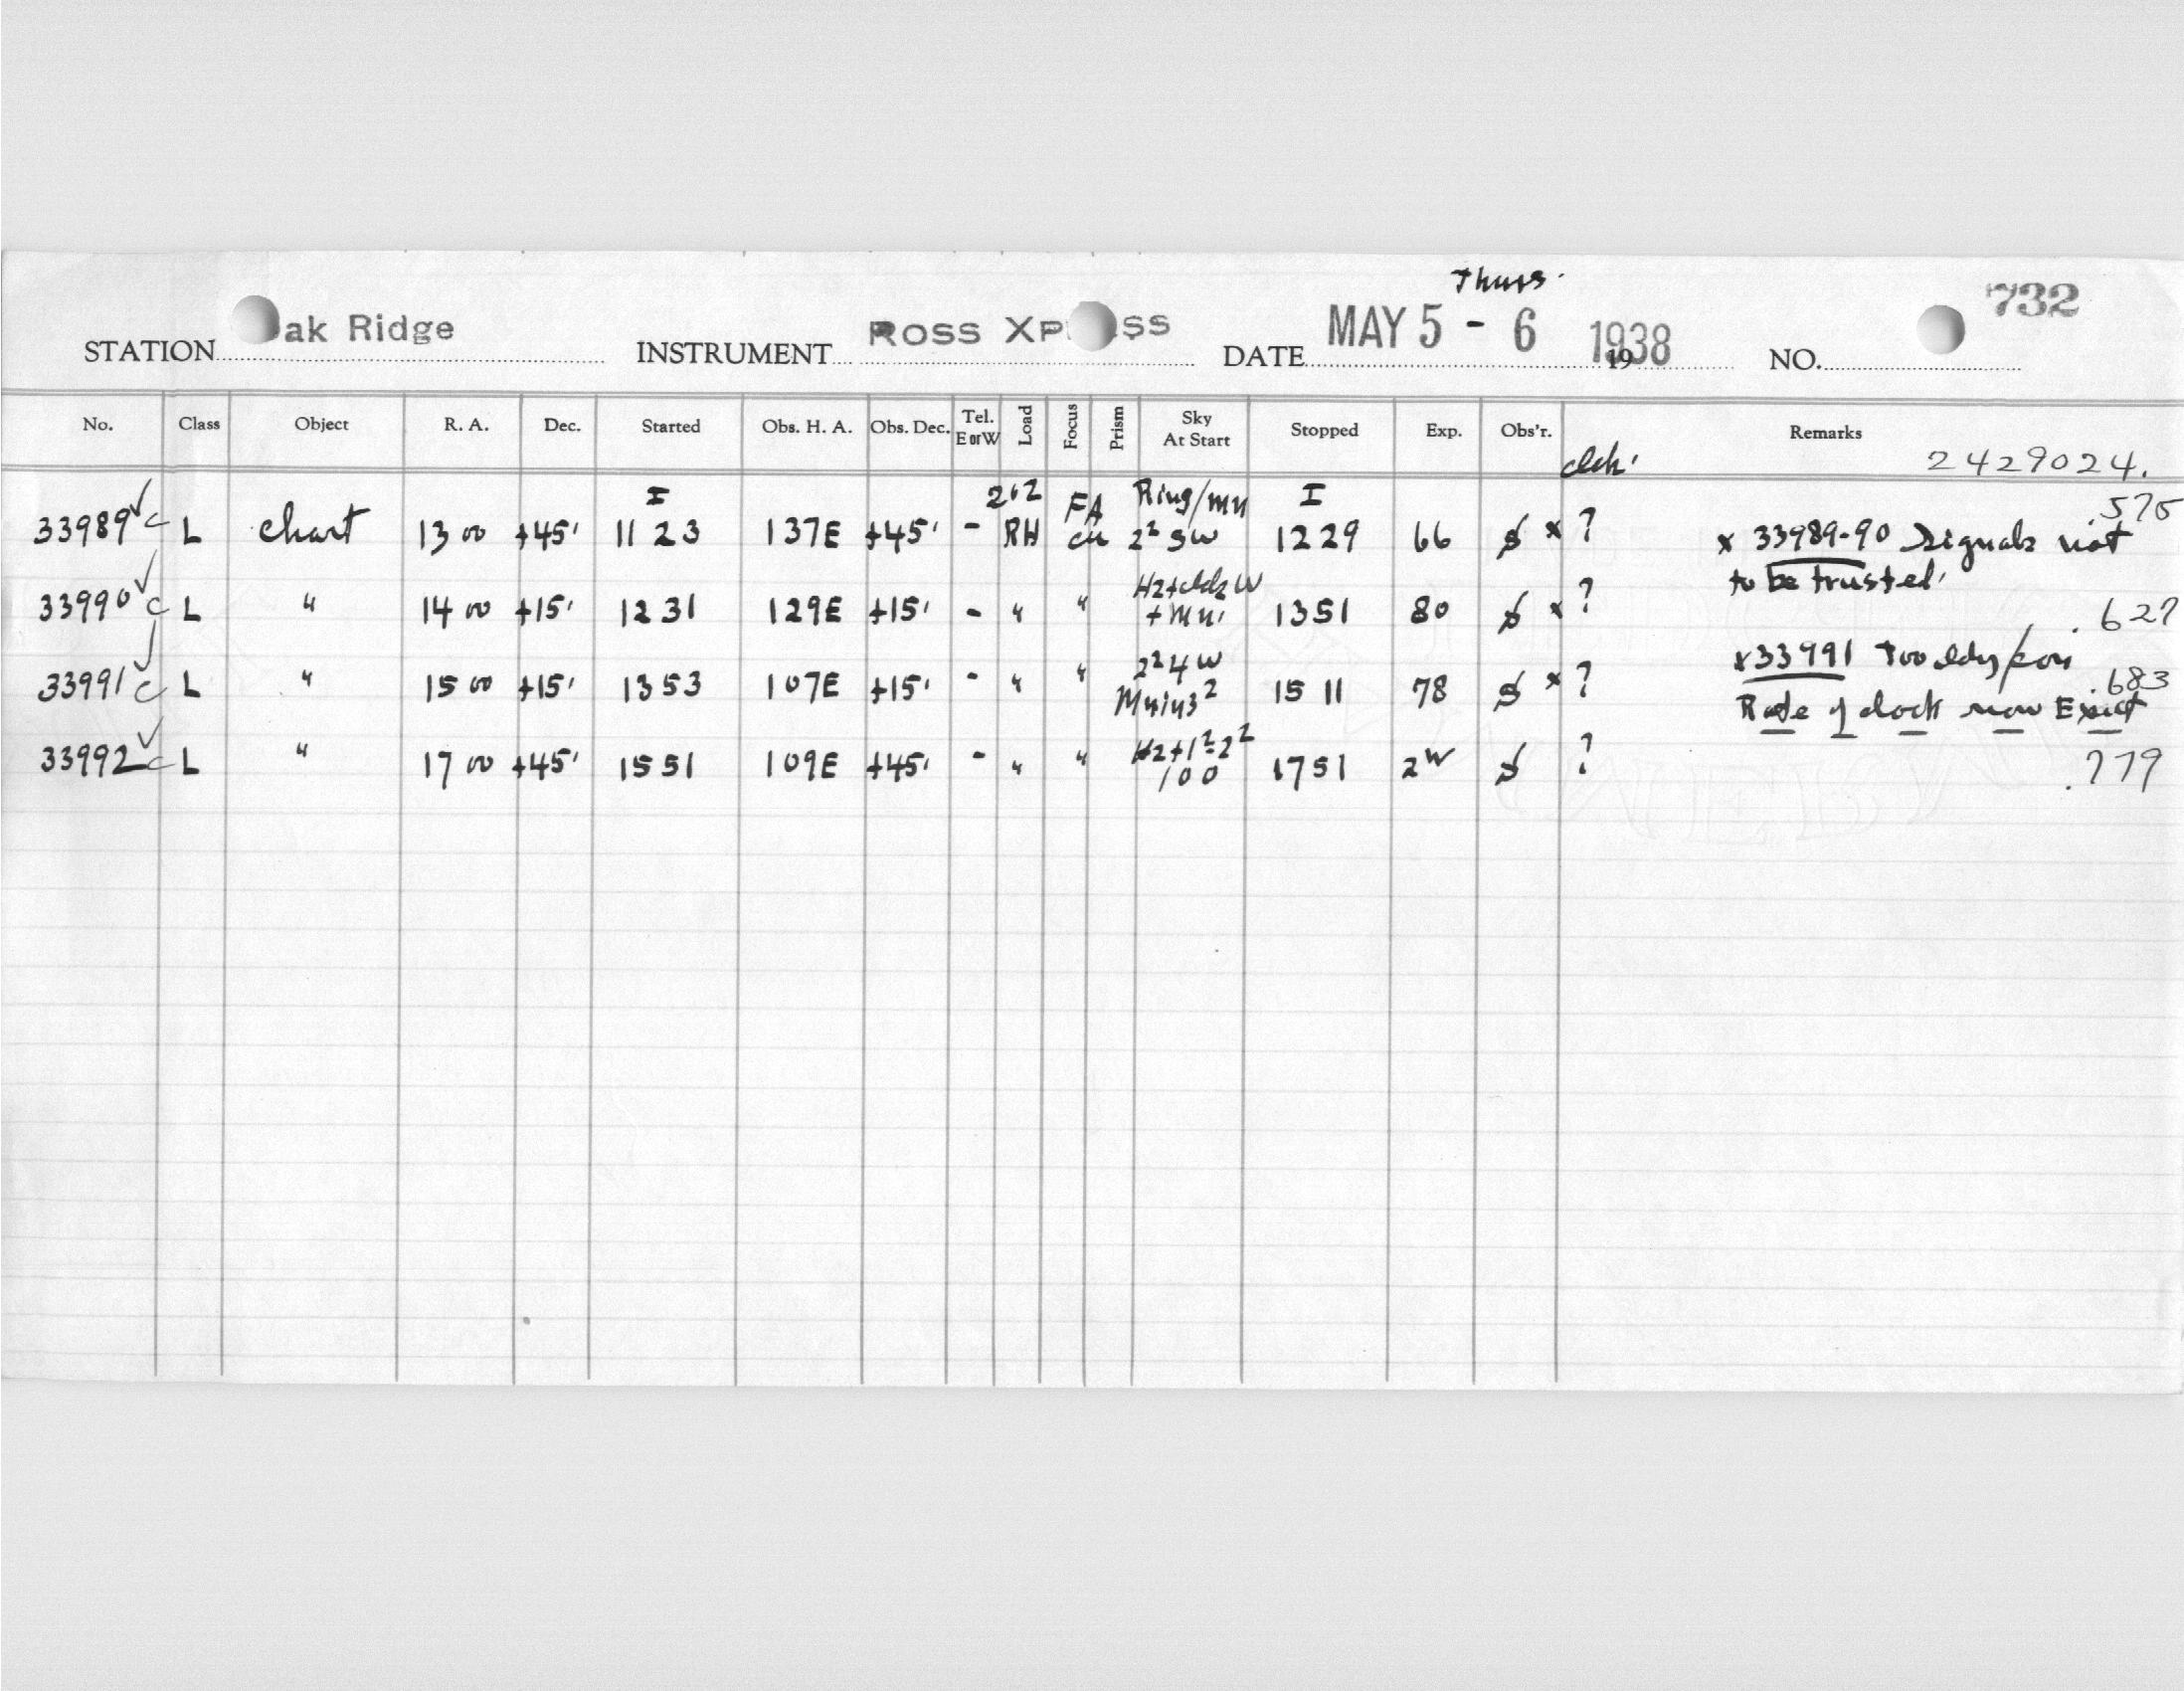 Thurs.
STATION ak Ridge INSTRUMENT ROSS XP SS DATE MAY 5 - 6 1938 19 NO. 732
No. Class Object R. A. Dec. Started Obs. H. A. Obs. Dec. Tel. E or W Load Focus Prism Sky At Start Stopped Exp. Obs'r. Remarks
2429024.
I 2 Ring/mn I .575
33989 c L chart 13 00 +45' 11 23 137E +45' - RH FA 2² SW 1229 66 x ? x 33989-90 Signals not
to be trusted.
33990 c L " 14 00 +15' 1231 129E +15' - " " + Mn. 1351 80 x ? .627
33991 c L " 15 00 +15' 1353 107E +15' - " " 2² 4 W 15 11 78 x ? x33991 Too .683
Rate of clock now Exact
33992 c L " 17 00 +45' 1551 109E +45' - " " Hz+1²-2² 100 1751 2 ? .779